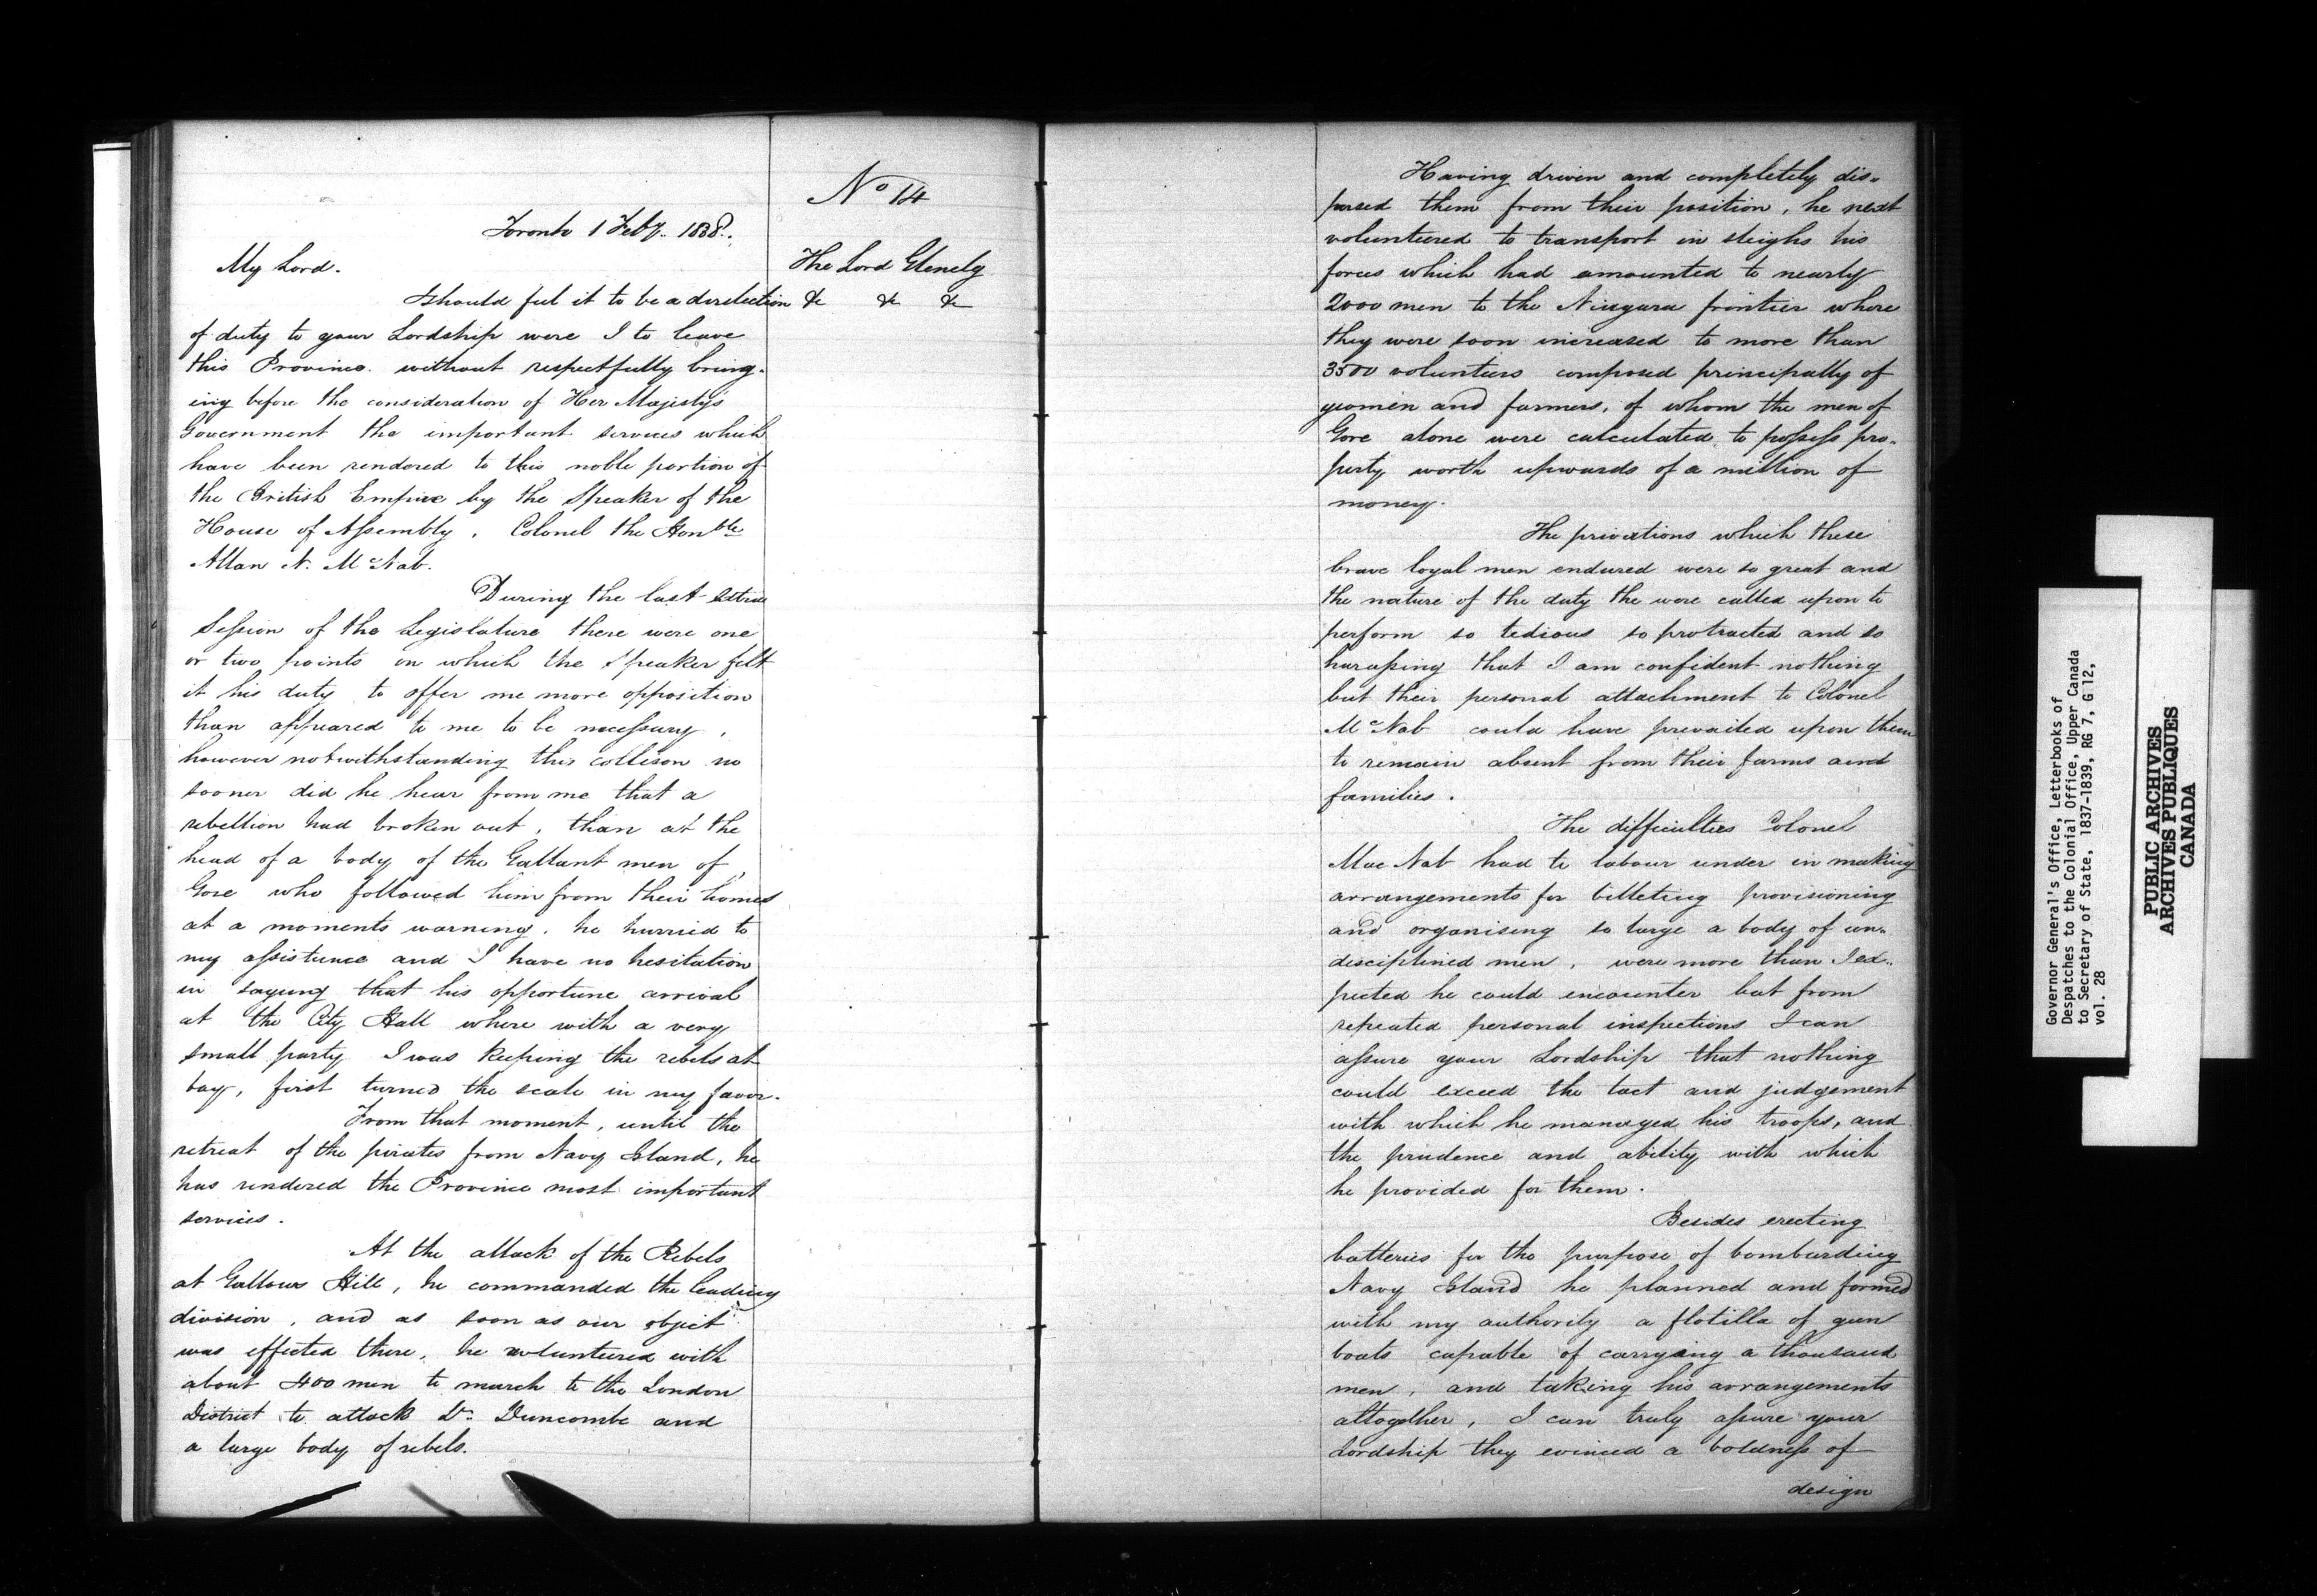 No 14
Toronto 1 Feby. 1838.
The Lord Glenelg
&c &c &c
My Lord.
I should feel it to be a dereliction
of duty to your Lordship were I to leave
this Province without respectfully bring-
ing before the consideration of Her Majesty's
Government the important services which
have been rendered to this noble portion of
the British Empire by the Speaker of the
House of Assembly, Colonel the Honble
Allan N. McNab.
During the last extra
Session of the Legislature there were one
or two points on which the Speaker felt
it his duty to offer me more opposition
than appeared to me to be necessary,
however notwithstanding this collison no
sooner did he hear from me that a
rebellion had broken out, than at the
head of a body of the Gallant men of
Gore who followed him from their homes
at a moments warning, he hurried to
my assistance and I have no hesitation
in saying that his opportune arrival
at the City Hall where with a very
small party I was keeping the rebels at
bay, first turned the scale in my favor.
From that moment, until the
retreat of the pirates from Navy Island, he
has rendered the Province most important
services.
At the attack of the Rebels
at Gallows Hill, he commanded the leading
division, and as soon as our object
was effected there, he volunteered with
about 400 men to march to the London
District to attack Dr. Duncombe and
a large body of rebels.
Having driven and completely dis-
persed them from their position, he next
volunteered to transport in sleighs his
forces which had amounted to nearly
2000 men to the Niagara frontier where
they were soon increased to more than
3500 volunteers composed principally of
yeomen and farmers, of whom the men of
Gore alone were calculated to possess pro-
perty worth upwards of a million of
money.
The privations which these
brave loyal men endured were so great and
the nature of the duty the were called upon to
perform so tedious so protracted and so
harassing that I am confident nothing
but their personal attachment to Colonel
McNab could have prevailed upon them
to remain absent from their farms and
families.
The difficulties Colonel
Mac Nab had to labour under in making
arrangements for billeting provisioning
and organising so large a body of un-
disciplined men, were more than I ex-
pected he could encounter but from
repeated personal inspections I can
assure your Lordship that nothing
could exceed the tact and judgement
with which he managed his troops, and
the prudence and ability with which
he provided for them.
Besides erecting
batteries for the purpose of bombarding
Navy Island he planned and formed
with my authority a flotilla of gun
boats capable of carrying a thousand
men, and taking his arrangements
altogether, I can truly assure your
Lordship they evinced a boldness of
design
Governor General's Office, Letterbooks of
Despatches to the Colonial Office, Upper Canada
to Secretary of State, 1837-1839, RG 7, G 12,
vol. 28
PUBLIC ARCHIVES
ARCHIVES PUBLIQUES
CANADA